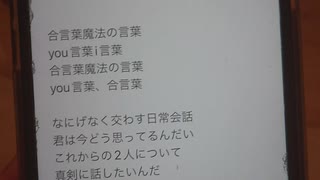 合言葉魔法の言葉
you言葉i言葉
合言葉魔法の言葉
you言葉、合言葉

なにげなく交わす日常会話
君は今どう思ってるんだい
これからの2人について
真剣に話したいんだ